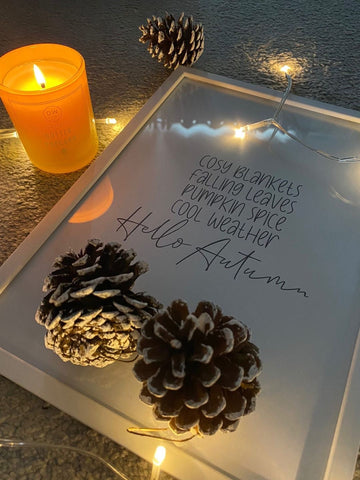 COSY BLANKETS
FALLING LEAVES
PUMPKIN SPICE
COOL WEATHER
Hello Autumn